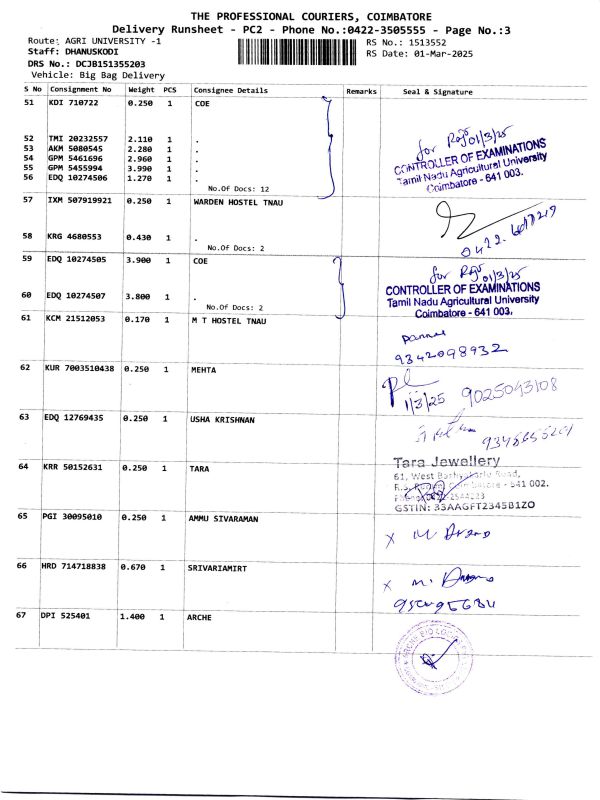 THE PROFESSIONAL COURIERS, COIMBATORE
Delivery Runsheet - PC2 - Phone No.:0422-3505555 - Page No.:3
Route: AGRI UNIVERSITY -1
RS No.: 1513552
Staff: DHANUSKODI
RS Date: 01-Mar-2025
DRS No.: DCJB151355203
Vehicle: Big Bag Delivery
S No Consignment No Weight PCS Consignee Details Remarks Seal & Signature
51 KDI 710722 0.250 1 COE
52 TMI 20232557 2.110 1 .
53 AKM 5080545 2.280 1 .
54 GPM 5461696 2.960 1 .
55 GPM 5455994 3.990 1 .
56 EDQ 10274506 1.270 1 .
No.Of Docs: 12
for 01/3/25
CONTROLLER OF EXAMINATIONS
Tamil Nadu Agricultural University
Coimbatore - 641 003.
57 IXM 507919921 0.250 1 WARDEN HOSTEL TNAU
58 KRG 4680553 0.430 1 .
No.Of Docs: 2
59 EDQ 10274505 3.900 1 COE
60 EDQ 10274507 3.800 1 .
No.Of Docs: 2
for 01/3/25
CONTROLLER OF EXAMINATIONS
Tamil Nadu Agricultural University
Coimbatore - 641 003.
61 KCM 21512053 0.170 1 M T HOSTEL TNAU
9342098932
62 KUR 7003510438 0.250 1 MEHTA
1/3/25 9025043108
63 EDQ 12769435 0.250 1 USHA KRISHNAN
64 KRR 50152631 0.250 1 TARA
Tara Jewellery
61, West Road,
641 002.
GSTIN: 33AAGFT2345B1ZO
65 PGI 30095010 0.250 1 AMMU SIVARAMAN
x M
66 HRD 714718838 0.670 1 SRIVARIAMIRT
x M.
67 DPI 525401 1.400 1 ARCHE